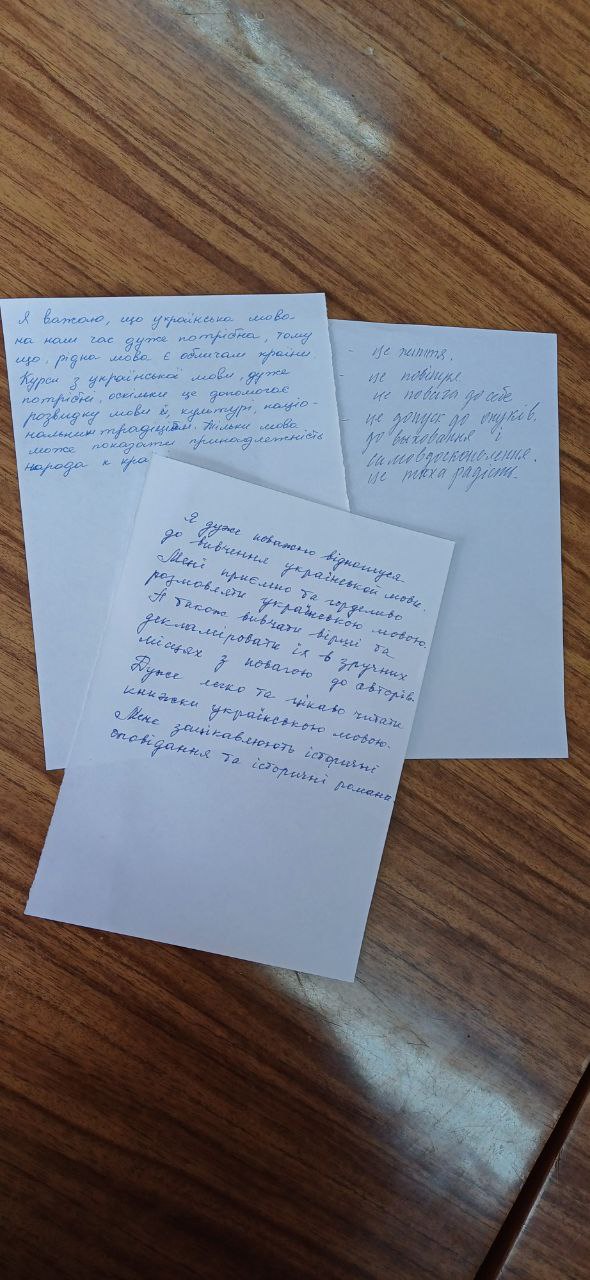 Я важаю, що українська мова
на наш час дуже потрібна, тому
що, рідна мова є обличам країни.
Курси з української мови, дуже
потрібні, оскільки це допомогає
розвидку мови й, культурі, націо-
нальним традиціям. Тільки мова
може показати принадлежність
народа к кра
- це життя.
- це повітря
- це повага до себе
- це допуск до онуків,
до выховання і
самовдосконалення.
це тиха радість.
Я дуже поважно відношуся
до вивчення української мови.
Мені приємно та горделиво
розмовляти українською мовою.
А також вивчати вірші та
декламіровати їх в зручних
місцях з повагою до авторів.
Дуже легко та цікаво читати
книжки українською мовою.
Мене зацікавлюють історичні
оповідання та історичні романи.